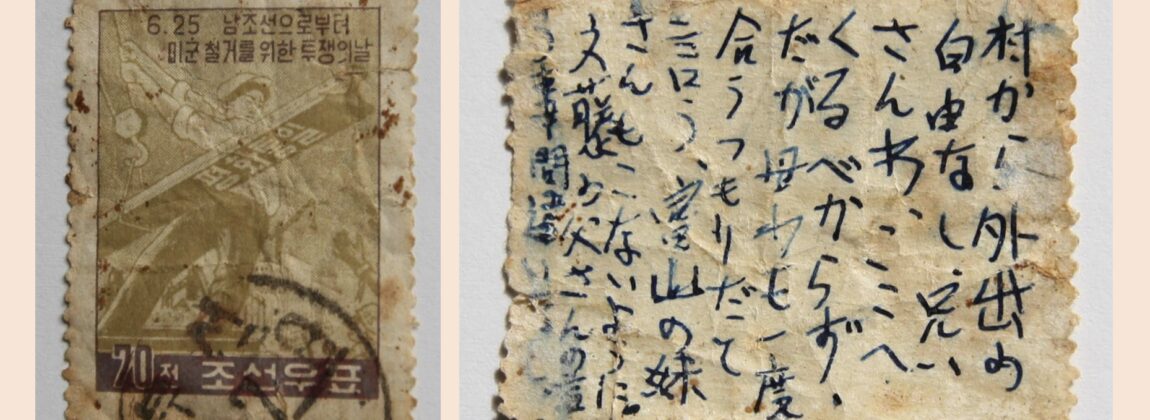 6.25 남조선으로부터
미군 철거를 위한 투쟁의날
평화통일
70전 조선우표
村から外出の
自由なし、兄い
さんわ、ここへ
くるべからず、
だが母わも一度
合うつもりだて
言う、富山の妹
さんもこないように
藤のお父さんの